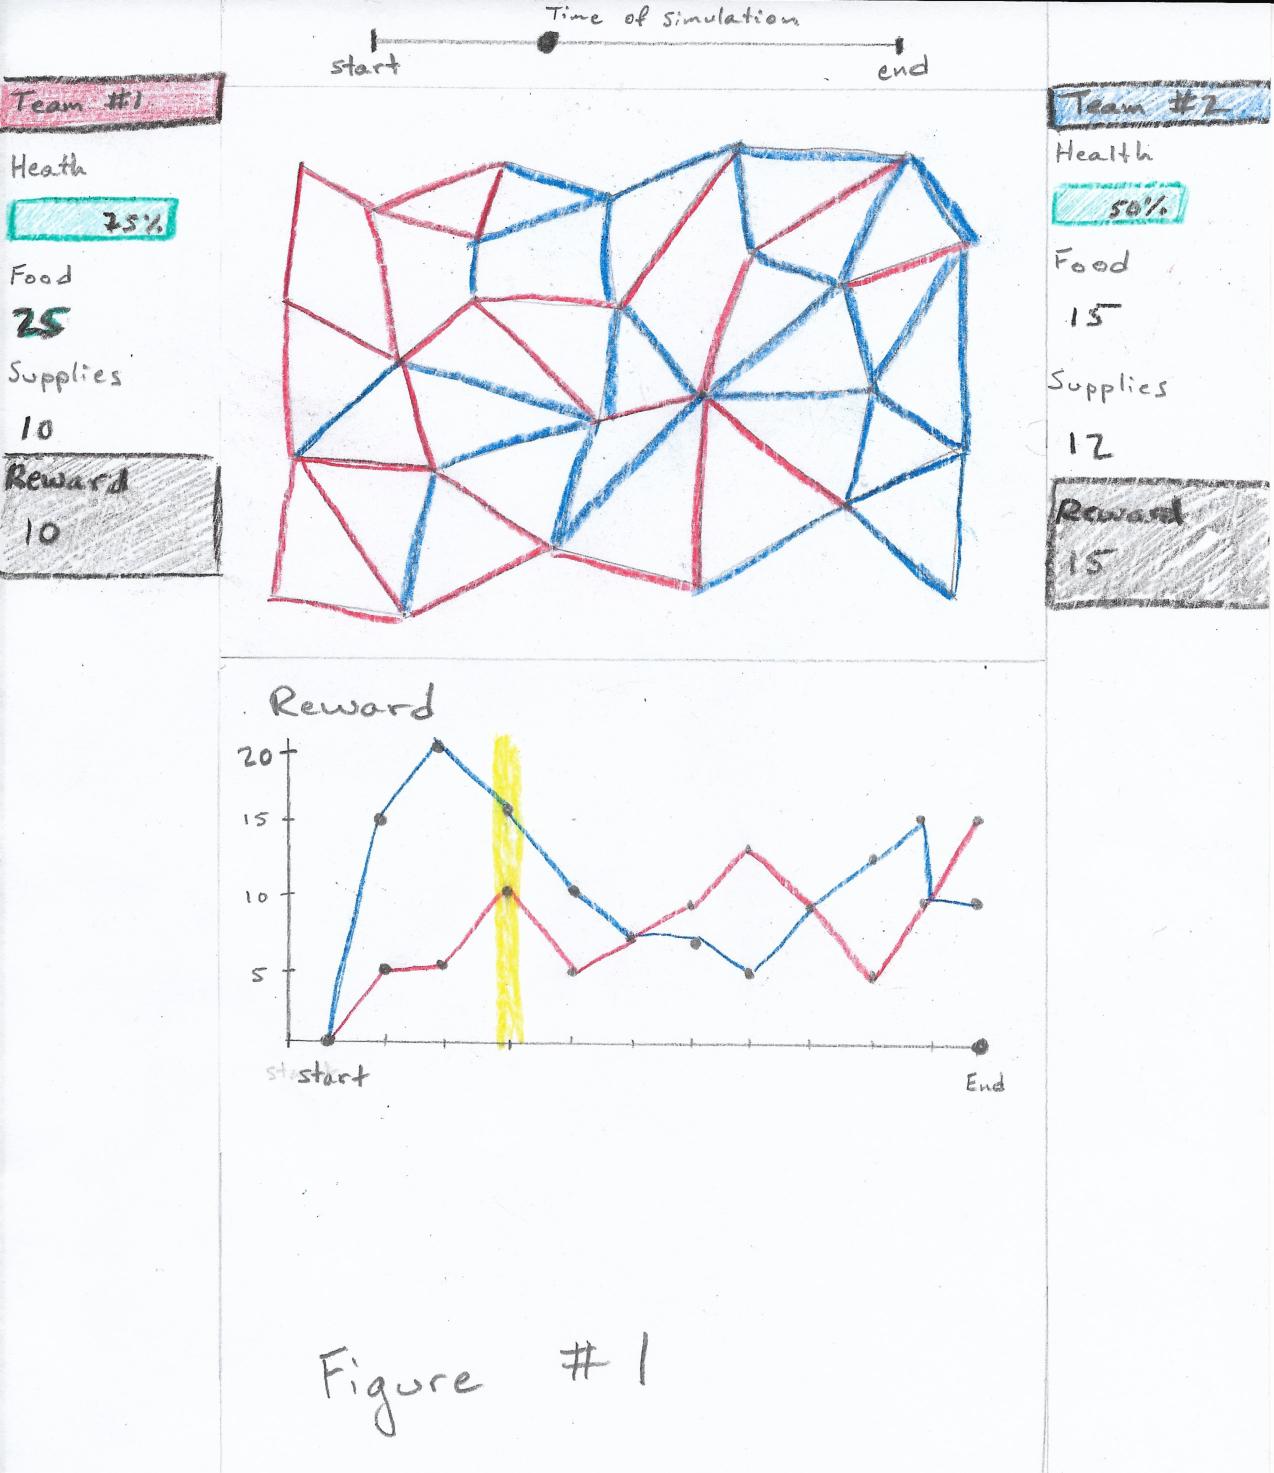 Time of simulation
start
end
Team #1
Heath
75%
Food
25
Supplies
10
Reward
10
Team #2
Health
50%
Food
15
Supplies
12
Reward
15
Reward
20
15
10
5
start
End
Figure #1